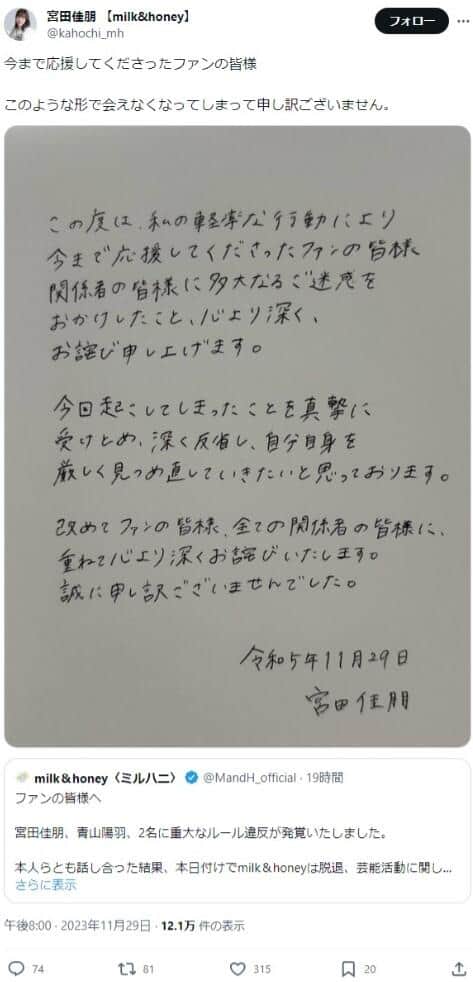 宮田佳朋 【milk&honey】
@kahochi_mh
フォロー
今まで応援してくださったファンの皆様
このような形で会えなくなってしまって申し訳ございません。
この度は、私の軽率な行動により
今まで応援してくださったファンの皆様
関係者の皆様に多大なるご迷惑を
おかけしたこと、心より深く、
お詫び申し上げます。
今回起こしてしまったことを真摯に
受けとめ、深く反省し、自分自身を
厳しく見つめ直していきたいと思っております。
改めてファンの皆様、全ての関係者の皆様に、
重ねて心より深くお詫びいたします。
誠に申し訳ございませんでした。
令和5年11月29日
宮田佳朋
milk&honey〈ミルハニ〉 @MandH_official · 19時間
ファンの皆様へ
宮田佳朋、青山陽羽、2名に重大なルール違反が発覚いたしました。
本人らとも話し合った結果、本日付けでmilk&honeyは脱退、芸能活動に関し...
さらに表示
午後8:00 · 2023年11月29日 · 12.1万 件の表示
74 81 315 20